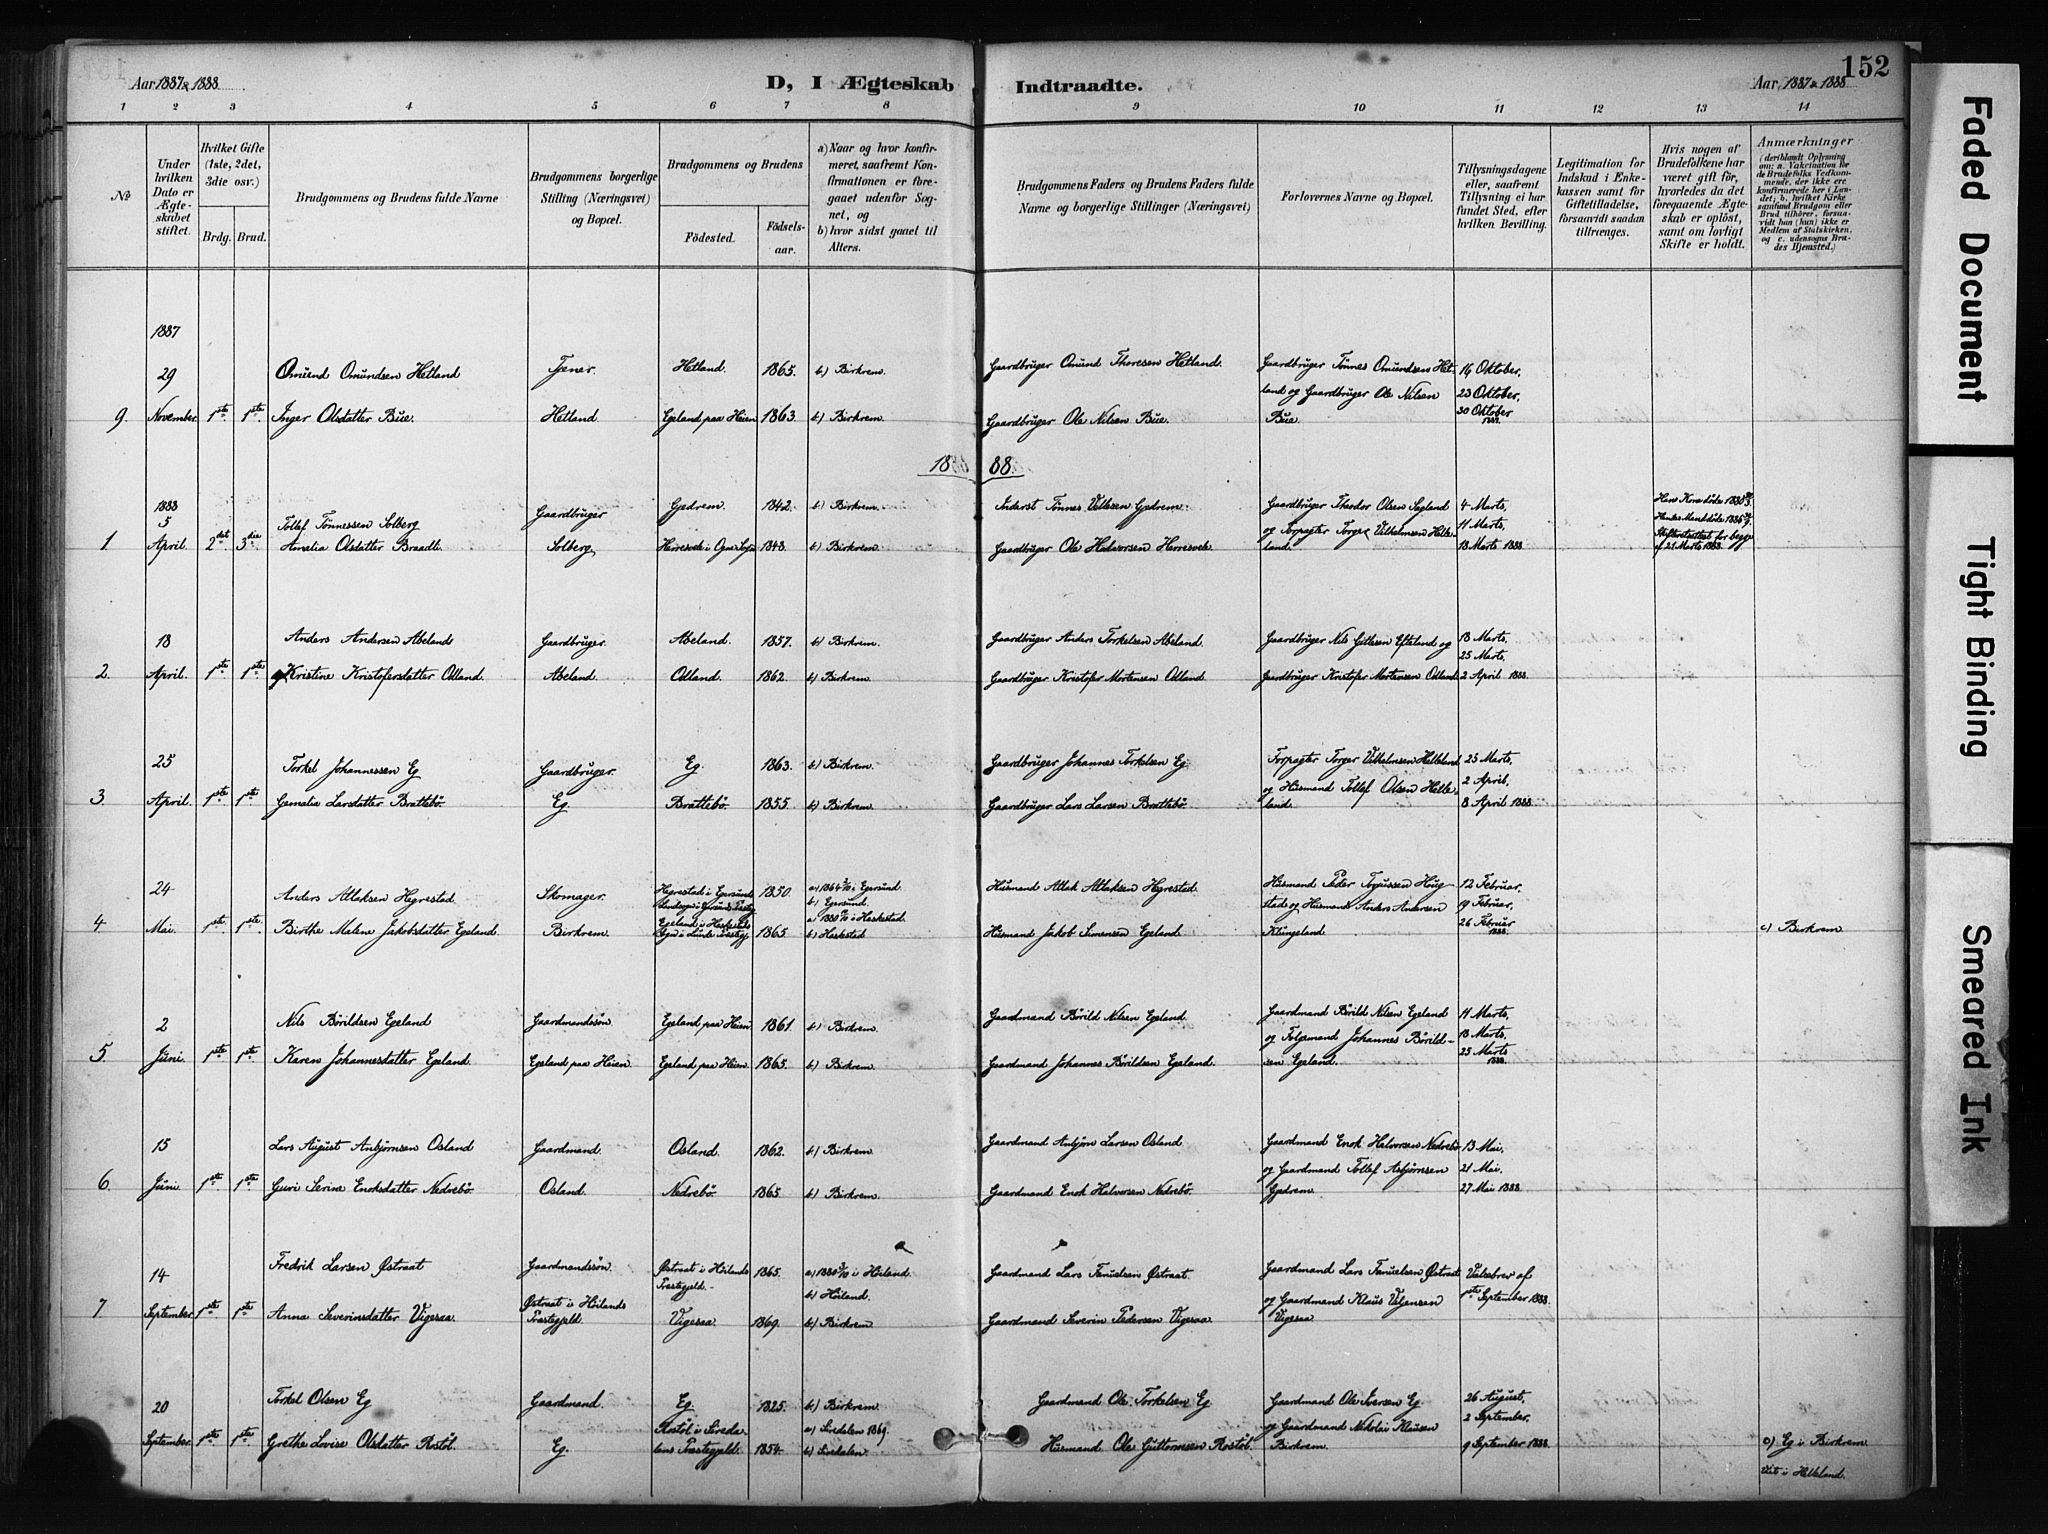 152
Aar 1887 & 1888
D, I Ægteskab Indtraadte.
Aar 1887 & 1888
1 2 3 4 5 6 7 8 9 10 11 12 13 14
No
Under hvilken Dato er Ægteskabet stiftet.
Hvilket Gifte (1ste, 2det, 3die osv.)
Brdg. Brud.
Brudgommens og Brudens fulde Navne
Brudgommens borgerlige Stilling (Næringsvei) og Bopæl.
Brudgommens og Brudens
Födested. Födselsaar.
a) Naar og hvor konfirmeret, saafremt Konfirmationen er foregaaet udenfor Sognet, og
b) hvor sidst gaaet til Alters.
Brudgommens Faders og Brudens Faders fulde Navne og borgerlige Stillinger (Næringsvei)
Forlovernes Navne og Bopæl.
Tillysningsdagene eller, saafremt Tillysning ei har fundet Sted, efter hvilken Bevilling.
Legitimation for Indskud i Enkekassen samt for Giftetilladelse, forsaavidt saadan tiltrænges.
Hvis nogen af Brudefolkene har været gift før, hvorledes da det foregaaende Ægteskab er oplöst, samt om lovligt Skifte er holdt.
Anmærkninger
(deriblandt Oplysning om: a. Vakcination för Brudefolks Vedkommende, der ikke ere konfirmerede her i Landet; b. hvilket Kirkesamfund Brudgom eller Brud tilhörer, forsaavidt han (hun) ikke er Medlem af Statskirken, og c. udensogns Brudes Hjemsted.)
1887
29 Omund Omundsen Hetland Tjener. Hetland. 1865. b) Birkrem. Gaardbruger Omund Thoresen Hetland. Gaardbruger Tönnes Omundsen Het- 16 Oktober,
land og Gaardbruger Ole Nilsen 23 Oktober,
9. November 1ste 1ste Inger Olsdatter Bue. Hetland Egeland paa Heien 1863. b) Birkrem. Gaardbruger Ole Nilsen Bue. Bue. 30 Oktober 1887.
1888.
1888
5 Tollef Tönnessen Solberg Gaardbruger Gjedrem. 1842. b) Birkrem. Inderst Tönnes Gjedrem. Gaardbruger Theodor Olsen Segland 4 Marts,
og Forpagter Torger Vilhelmsen Helle- 11 Marts,
1. April 2det 3die Amelia Olsdatter Braadli Solberg. Herresvek i Ogne Sogn 1848. b) Birkrem. Gaardbruger Ole Halvorsen Herresvek land. 18 Marts 1888
Hans Kone döde
Hendes Mand döde
Skifteretsattest for begge
af 21 Marts 1888.
18 Anders Andersen Abeland Gaardbruger. Abeland 1857. b) Birkrem. Gaardbruger Anders Torkelsen Abeland. Gaardbruger Nils Gitlesen Efteland og 18 Marts,
25 Marts,
2. April. 1ste 1ste Kristine Kristofersdatter Odland. Abeland Odland. 1862. b) Birkrem. Gaardbruger Kristofer Mortensen Odland Gaardbruger Kristofer Mortensen Odland. 2 April 1888.
25 Torkel Johannessen Eg Gaardbruger. Eg. 1863. b) Birkrem. Gaardbruger Johannes Torkelsen Eg. Forpagter Torger Vilhelmsen Helleland 25 Marts,
og Husmand Tollef Olsen Helle- 2 April,
3. April. 1ste 1ste Larsdatter Brattebö. Eg. Brattebö. 1855. b) Birkrem. Gaardbruger Lars Larsen Brattebö. land. 8 April 1888.
24 Anders Atlaksen Hegrestad Skomager. Hegrestad i Egersunds Landsogn i Egersunds Præstg. 1850. a) 1864 i Egersund. b) Egersund. Husmand Atlak Atlaksen Hegrestad Husmand Peder Haug- 12 Februar,
stad og Husmand Anders Andersen 19 Februar,
4. Mai. 1ste 1ste Birthe Malene Jakobsdatter Egeland Birkrem. Egeland i Heskestads Sogn i Lunds Præstegj. 1865 a) 1880 i Heskestad. b) Heskestad Husmand Jakob Simonsen Egeland Klungeland 26 Februar 1888. c) Birkrem
2 Nils Börildsen Egeland Gaardmandssön. Egeland paa Heien 1861. b) Birkrem. Gaardmand Börild Nilsen Egeland Gaardmand Börild Nilsen Egeland 11 Marts,
og Folgemand Johannes Börild- 18 Marts,
5 Juni. 1ste 1ste Karen Johannesdatter Egeland. Egeland paa Heien. Egeland paa Heien. 1865. b) Birkrem. Gaardmand Johannes Börildsen Egeland. sen Egeland. 25 Marts 1888.
15 Lars August Anbjörnsen Osland Gaardmand. Osland. 1862. b) Birkrem. Gaardmand Anbjörn Larsen Osland Gaardmand Enok Halvorsen Nedrebö 13 Mai,
og Gaardmand Tollef Asbjörnsen 21 Mai,
6. Juni 1ste 1ste Guri Serine Enoksdatter Nedrebö. Osland. Nedrebö. 1865 b) Birkrem. Gaardmand Enok Halvorsen Nedrebö. Gjedrem. 27 Mai 1888.
14 Fredrik Larsen Østraat Gaardmandssön. Østraat i Höilands Præstegjeld. 1865. a) 1880 i Höiland. b) Höiland. Gaardmand Lars Østraat. Gaardmand Lars Østraat Valsebrev af
og Gaardmand Klaus 1ste September 1888.
7 September 1ste 1ste Anna Severinsdatter Vigesaa. Østraat i Höilands Præstegjeld. Vigesaa 1869. b) Birkrem Gaardmand Severin Pedersen Vigesaa Vigesaa
20 Torkel Olsen Eg Gaardmand. Eg. 1825. b) Birkrem. Gaardmand Ole Torkelsen Eg Gaardmand Ole Iversen Eg 26 August,
og Gaardmand Nikolai Klausen 2 September,
September 1ste 1ste Grethe Lovise Olsdatter Rostöl. Eg. Rostöl i Siredalens Præstegjeld. 1854. a) Siredalen 1869. b) Siredalen. Husmand Ole Guttormsen Rostöl. Birkrem. 9 September 1888. c) Eg i Birkrem
Viet i Helleland.
Faded Document
Tight Binding
Smeared Ink